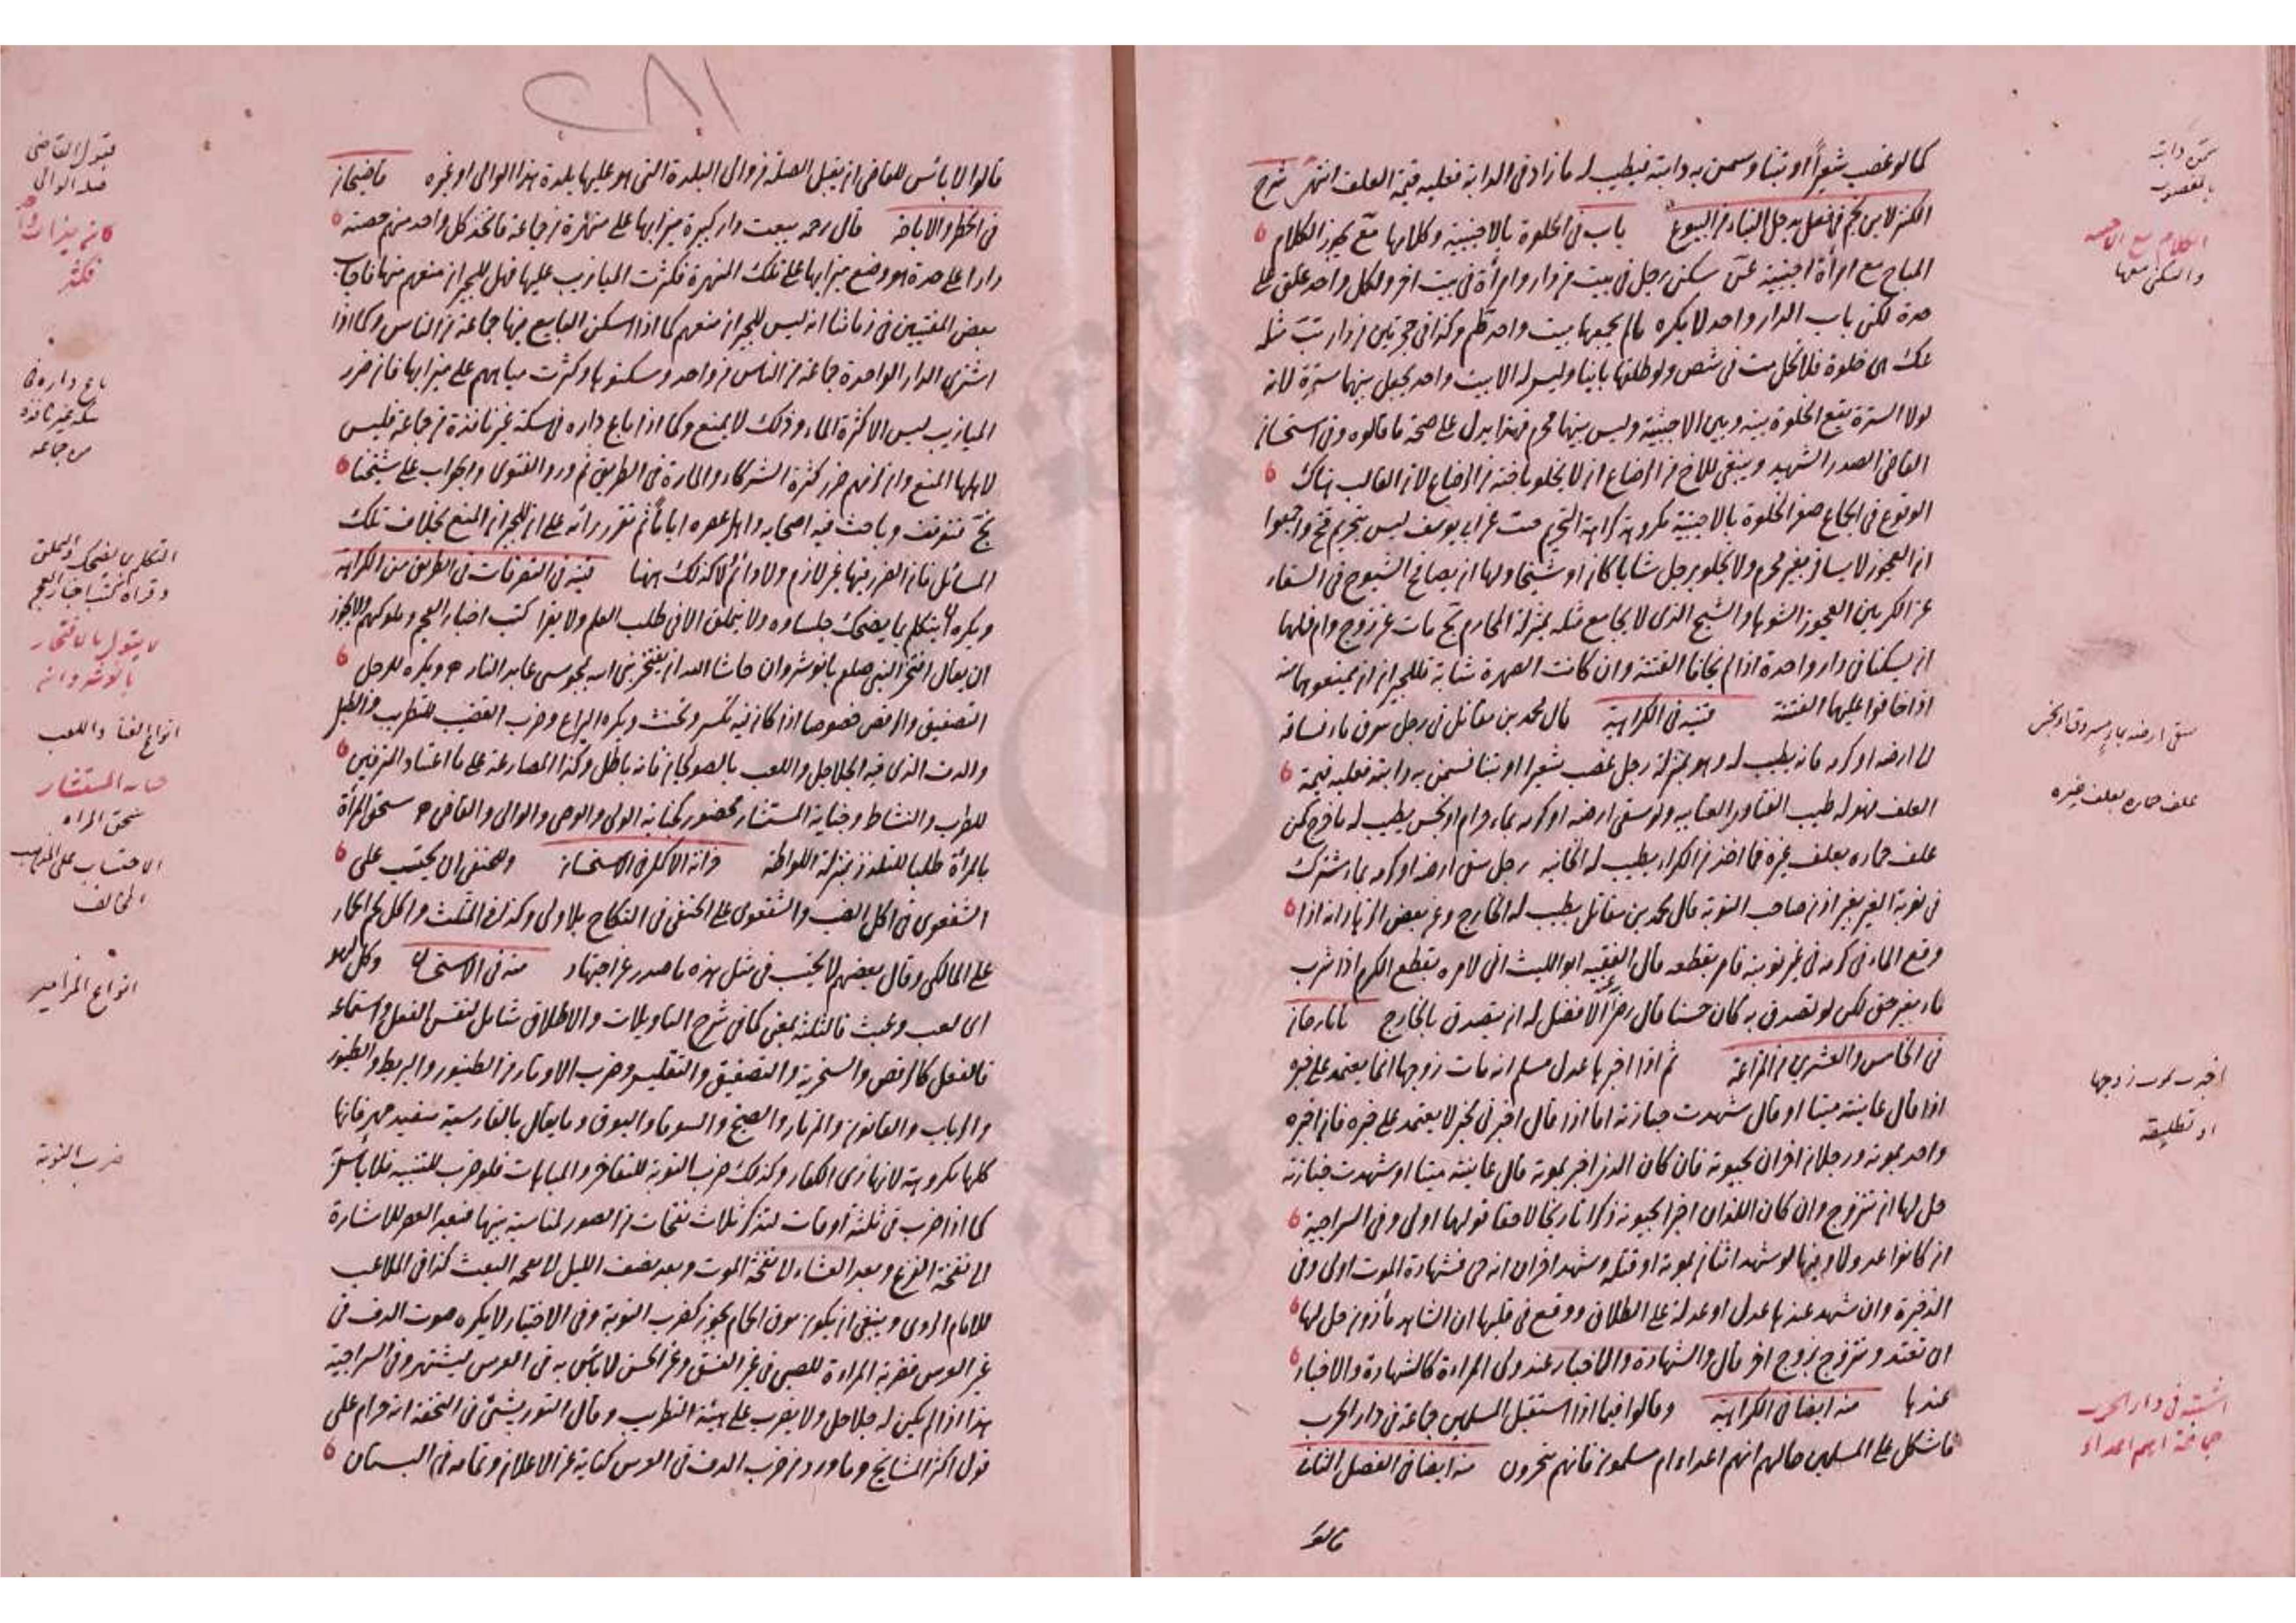 كما لو غصب شعيرا او تبنا وسمن به دابته فيطيب له ما زاد في الدابة فعليه قيمة العلف انتهى شرح
الكنز لابن نجيم في فصل يدخل البناء من البيوع باب في الخلوة بالاجنبية وكلامها مع يجوز الكلام
المباح مع امرأة اجنبية سكن رجل في بيت من دار وامرأة في بيت اخر ولكل واحد غلق على
حدة لكن باب الدار واحد لا يكره ما لم يجمعهما بيت واحد وكذا في حجرتين من دار
هي خلوة فلا تحل ولو طلقها باينا وليس له الا بيت واحد يجعل بينهما سترة لانه
لولا السترة يقع الخلوة بينه وبين الاجنبية وليس بينهما محرم فهذا يدل على صحة ما قالوه وفي استحسان
القاضي الصدر الشهيد وينبغي للاخ من الرضاع ان لا يخلو باخته من الرضاع لان الغالب هناك
الوقوع في الجماع الخلوة بالاجنبية مكروهة كراهة التحريم وعن ابي يوسف ليس بتحريم واجمعوا
ان العجوز لا يسافر بغير محرم ولا تخلو برجل شابا كان او شيخا ولها ان يصافح الشيوخ في الشفاء
عن الكرميني العجوز الشوهاء والشيخ الذي لا يجامع مثله بمنزلة المحارم مات عن زوج وام فلهما
ان يسكنا في دار واحدة اذا لم يخافا الفتنة وان كانت الصهرة شابة فللجيران ان يمنعوهما منه
اذا خافوا عليهما الفتنة قنية في الكراهية قال محمد بن مقاتل في رجل سرق ماء فساقه
الى ارضه او كرمه فانه يطيب له وهو بمنزلة رجل غصب شعيرا او تبنا فسمن به دابته فعليه قيمة
العلف فهو له طيب ولو سقى ارضه او كرمه بماء حرام او نجس يطيب له ما خرج كمن
علف حماره بعلف غيره فما اخذ من الكراء يطيب له الخانية رجل سقى ارضه او كرمه بماء مشترك
في نوبة الغير بغير اذن صاحب النوبة قال محمد بن مقاتل يطيب له الخارج وعن بعض الزهاد انه اذا
وقع الماء في كرمه في غير نوبته فامر بقطعه قال الفقيه ابو الليث اني لا امره بقطع الكرم اذا شرب
ماء بغير حق لكن لو تصدق به كان حسنا قال الافضل له ان يتصدق بالخارج تاتارخان
في الخامس والعشرين من المزارعة ثم اذا اخبرها عدل مسلم انه مات زوجها انما يعتمد على خبره
اذا قال عاينته ميتا او قال شهدت جنازته اما اذا قال اخبرني مخبر لا يعتمد على خبره فان اخبره
واحد بموته ورجلان اخران بحيوته فان كان الذي اخبر بموته قال عاينته ميتا او شهدت جنازته
حل لها ان تتزوج وان كان اللذان اخبرا بحيوته ذكرا تاريخا لاحقا فقولهما اولى وفي السراجية
ان كانوا عدولا وفيها لو شهد اثنان بموته او قتله وشهد اخران انه حي فشهادة الموت اولى وفي
الذخيرة وان شهد عندها عدل او عدلة على الطلاق ووقع في قلبها ان الشاهد مأذون حل لها
ان تعتد وتتزوج بزوج اخر قال والشهادة والاخبار عند ولي المراءة كالشهادة والاخبار
عندها منه ايضا في الكراهية وقالوا فيما اذا استقبل المسلمين جماعة في دار الحرب
فاشكل على المسلمين حالهم انهم اعداء ام مسلمون فانهم يتحرون منه ايضا في الفصل الثاني
قالوا
سمن دابته
بالمغصوب
الكلام مع الاجنبية
والسكنى معها
سقى ارضه بماء مسروق او نجس
علف حماره بعلف غيره
اخبرت بموت زوجها
او تطليقه
اشتبه في دار الحرب
جماعة انهم اعداء
قالوا لا بائس للقاضي ان يقبل الصلة من والي البلدة التي هو عليها بلدة هذا الوالي او غيره قاضيخان
في الحظر والاباحة قال رحمه بيعت دار كبيرة ميزابها على منهرة من جماعة فاتخذ كل واحد منهم حصته
دارا على حدة هو ووضع ميزابها على تلك المنهرة فكثرت الميازيب عليها فهل للجيران منعهم منها فاجاب
بعض المفتيين في زماننا انه ليس للجيران منعهم كما اذا اسكن البايع فيها جماعة من الناس وكما اذا
اشترى الدار الواحدة جماعة من الناس من واحد وسكنوها وكثرت مياههم على ميزابها فان ضرر
الميازيب ليس الا كثرة الماء وذلك لا يمنع وكما اذا باع داره في سكة غير نافذة من جماعة فليس
لاهلها المنع وان لزمهم ضرر كثرة الشركاء والمارة في الطريق ثم ورد الفتوى والجواب على شيخنا
فتوقف وباحث فيه اصحابه واهل عصره اياما ثم تقرر رائه على ان للجيران المنع بخلاف تلك
المسائل فان الضرر فيها غير لازم ولا دائم ولا كذلك ههنا قنية في التصرفات في الطريق من الكراهية
ويكره ان يتكلم بما يضحك جلساوه ولا يتملق الا في طلب العلم ولا يقرا كتب اخبار العجم وملوكهم ولا يجوز
ان يقال افتخر النبي صلعم بانوشروان حاشا الله ان يفتخر نبي الله بمجوسي عابد النار ويكره للرجل
التصفيق والرقص خصوصا اذا كان فيه تكسر وتخنث ويكره اليراع وضرب القضيب للتطريب والطبل
والدف الذي فيه الجلاجل واللعب بالصولجان فانه باطل وكذا المصارعة على ما اعتاد المترفين
للطرب والنشاط وخيانة المستشار محضور كخيانة الولي والوصي والوالي والقاضي سحق المرأة
بالمرأة طلبا للتلذذ بمنزلة اللواطة خزانة الاكمل في الاستحسان وللحنفي ان يحتسب على
الشفعوي في اكل الضب والشفعوي على الحنفي في النكاح بلا ولي وكذا في المثلث واكل لحم الحمار
على المالكي وقال بعضهم لا يحتسب في مثل هذه ما صدر عن اجتهاد منه في الاستحسان وكل لهو
اي لعب وعبث فالثلثة بمعنى كما في شرح التاويلات والاطلاق شامل لنفس الفعل واستماعه
فالفعل كالرقص والسخرية والتصفيق والتقليس وضرب الاوتار من الطنبور والبربط والطنبور
والرباب والقانون والمزمار والصنج والسورنا والبوق وما يقال بالفارسية سفيد مهره فانها
كلها مكروهة لانها زي الكفار وكذلك ضرب النوبة للتفاخر والمباهات فلو ضرب للتنبيه فلا بأس
كما اذا ضرب في ثلثة اوقات لتذكر ثلاث نفخات من الصور لمناسبة بينهما فبعد العصر للاشارة
الى نفخة الفزع وبعد العشاء الى نفخة الموت وبعد نصف الليل الى نفخة البعث كذا في الملاعب
للامام البزدوي وينبغي ان يكون بوق الحمام يجوز كضرب النوبة وفي الاختيار لا يكره صوت الدف في
غير العرس فضربة المراءة للصبي في غير الفسق وعن الحسن لا باس به في العرس ليشتهر وفي السراجية
هذا اذا لم يكن له جلاجل ولا يضرب على هيئة التطرب وقال التوربشتي في التحفة انه حرام على
قول اكثر المشايخ وما ورد من ضرب الدف في العرس كناية عن الاعلان وتمامه في البستان
قبول القاضي
صلة الوالي
باع داره في
سكة غير نافذة
من جماعة
التكلم بما يضحك والتملق
وقراءة كتب اخبار العجم
لا يقول بالافتخار
بانوشروان
انواع الغناء واللعب
خيانة المستشار
سحق المراة
الاحتساب على المذهب
المخالف
انواع المزامير
ضرب النوبة